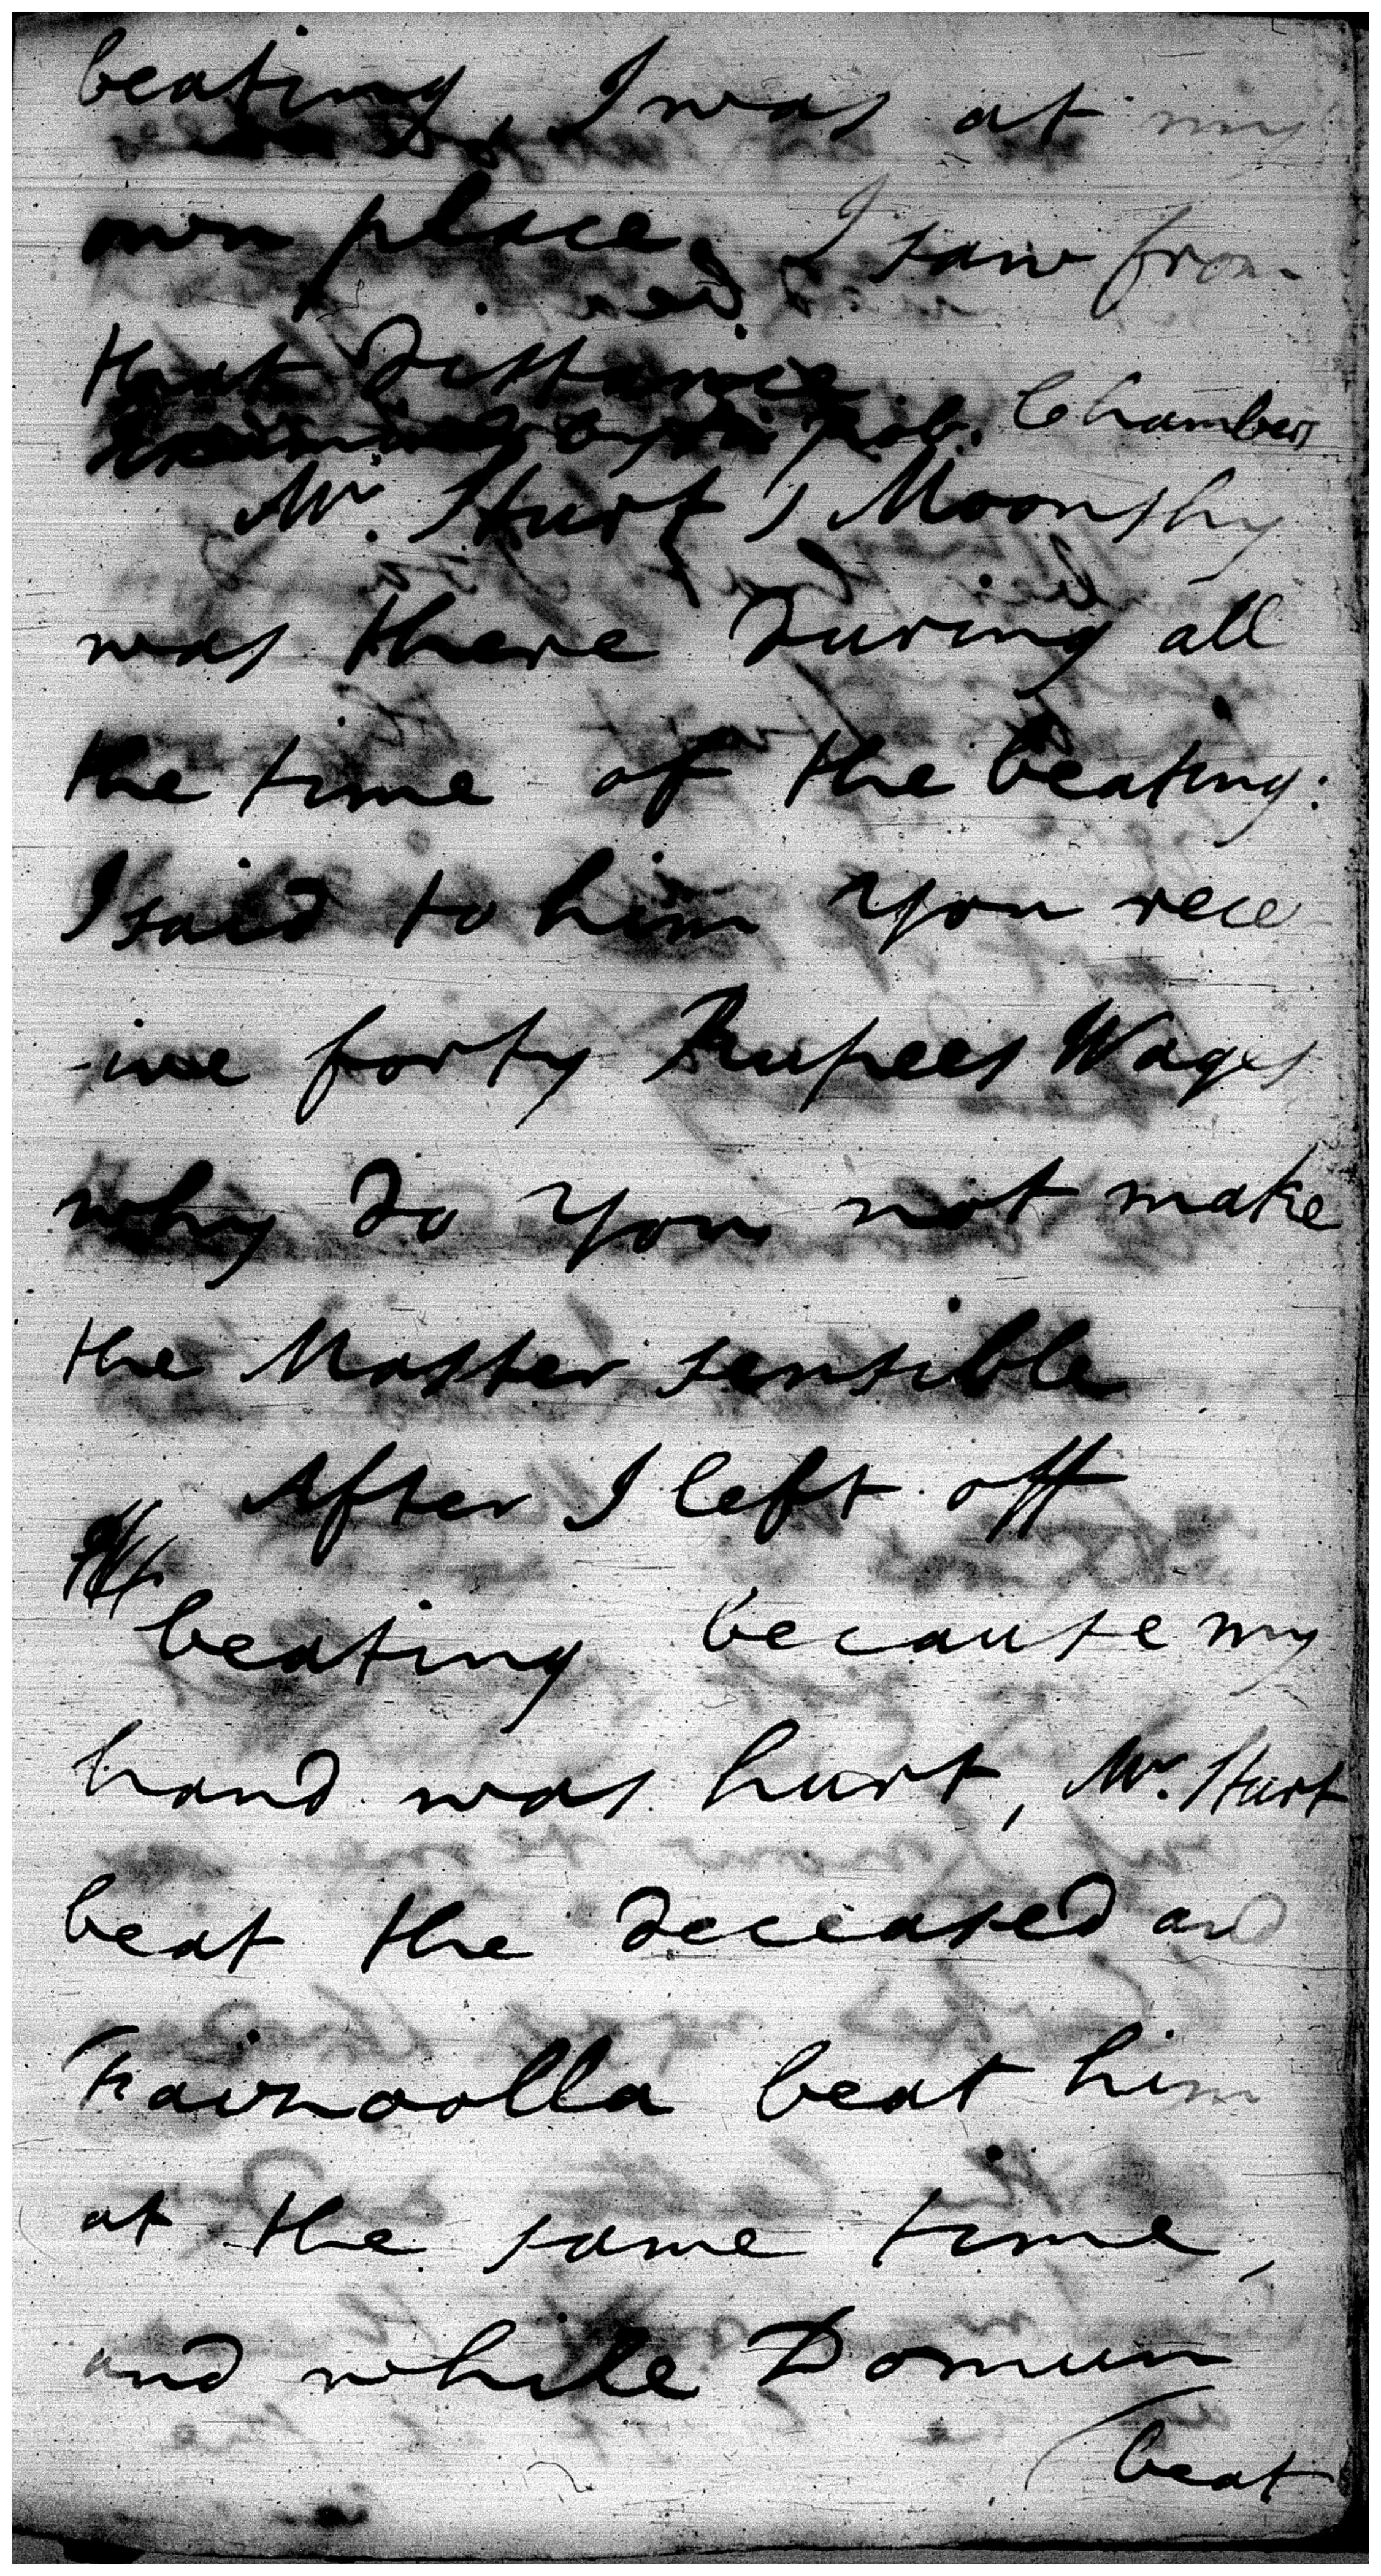 beating, I was at my
own place, I saw from
that distance
Examined by Sir Rob. Chambers
Mr. Hurst's Moonshy
was there during all
the time of the beating.
I said to him you rece
-ive forty Rupees Wages
why do you not make
the Master sensible
After I left off
beating because my
hand was hurt, Mr. Hurst
beat the deceased and
Fainoolla beat him
at the same time,
and while Domun
beat